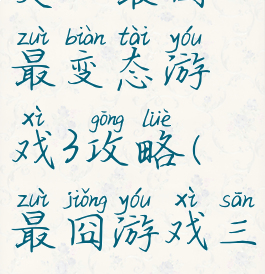 zuì biàn tài yóu
最变态游
xì gōng lüè
戏3攻略(
zuì jiǒng yóu xì sān
最囧游戏三